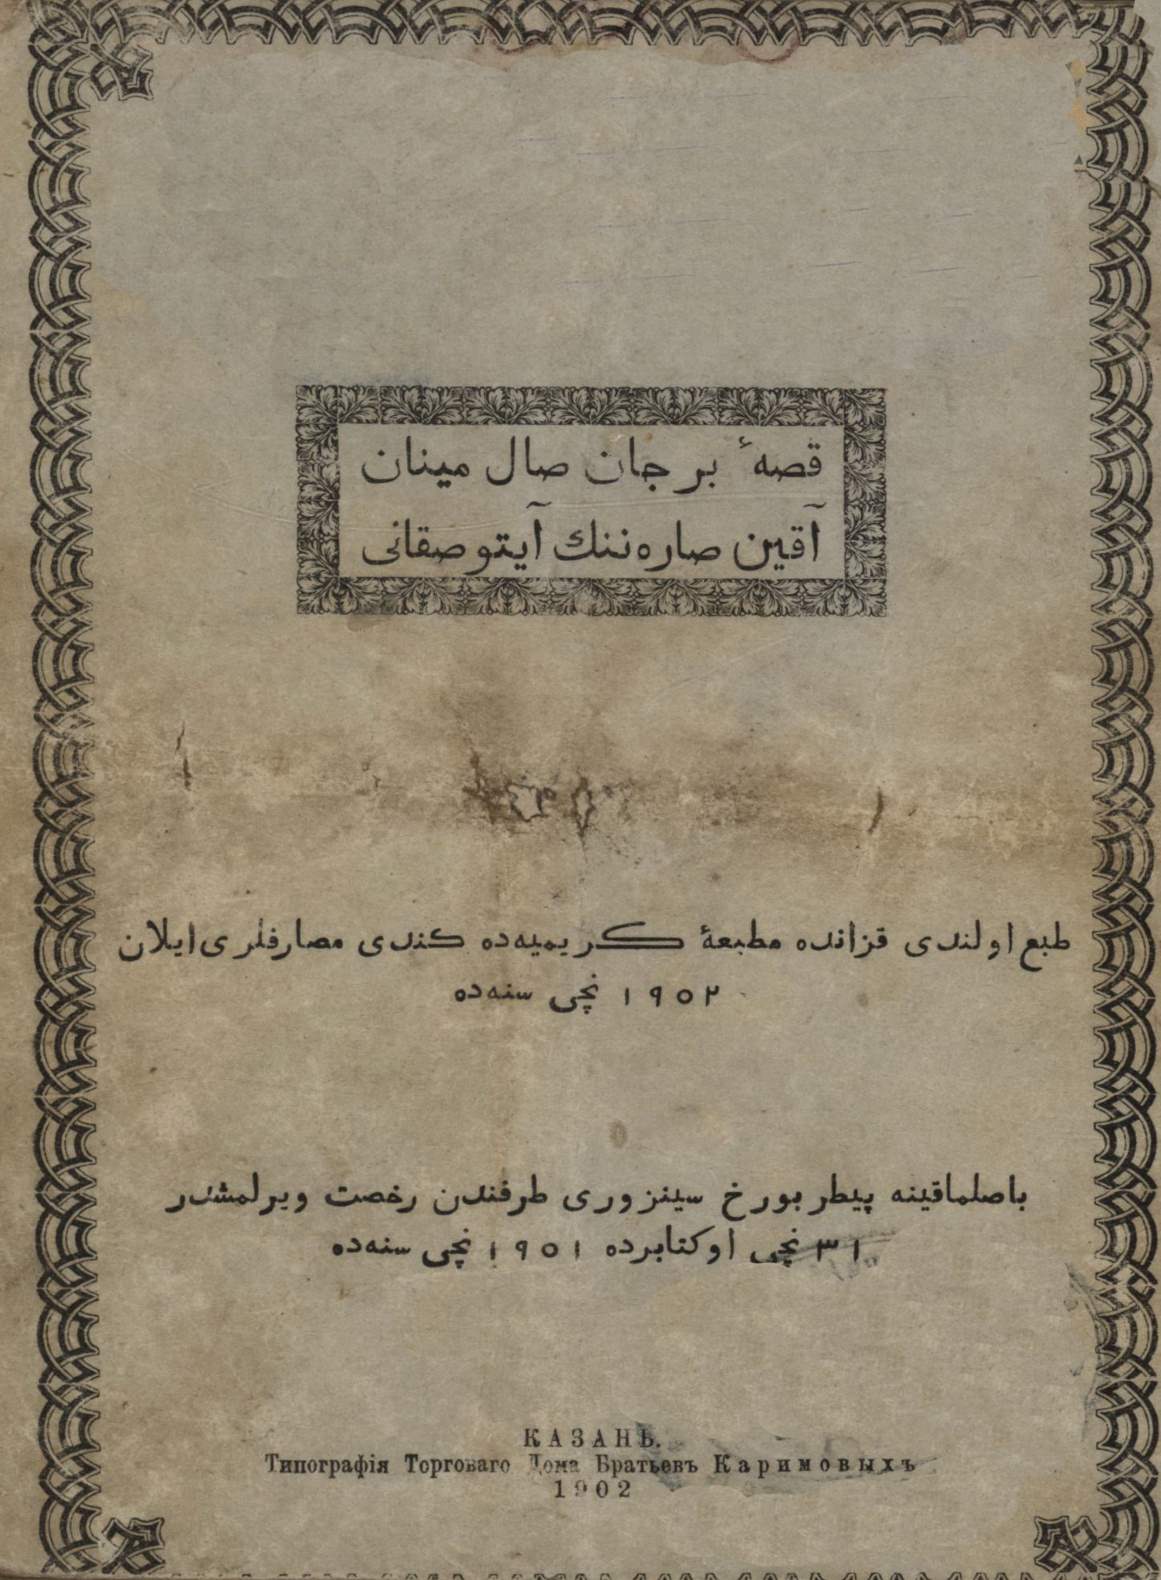 قصهٔ بر جان صال مینان
آقین صاره ننك آیتوصقانی
طبع اولندی قزانده مطبعهٔ کریمیه‌ده کندی مصارفلری ایلان
۱۹۰۲ نچی سنه‌ده
باصلماقینه پیطربورخ سینزوری طرفندن رخصت ویرلمشدر
۳۱ نچی اوکتابرده ۱۹۰۱ نچی سنه‌ده
КАЗАНЬ.
Типографія Торговаго Дома Братьевъ Каримовыхъ
1902